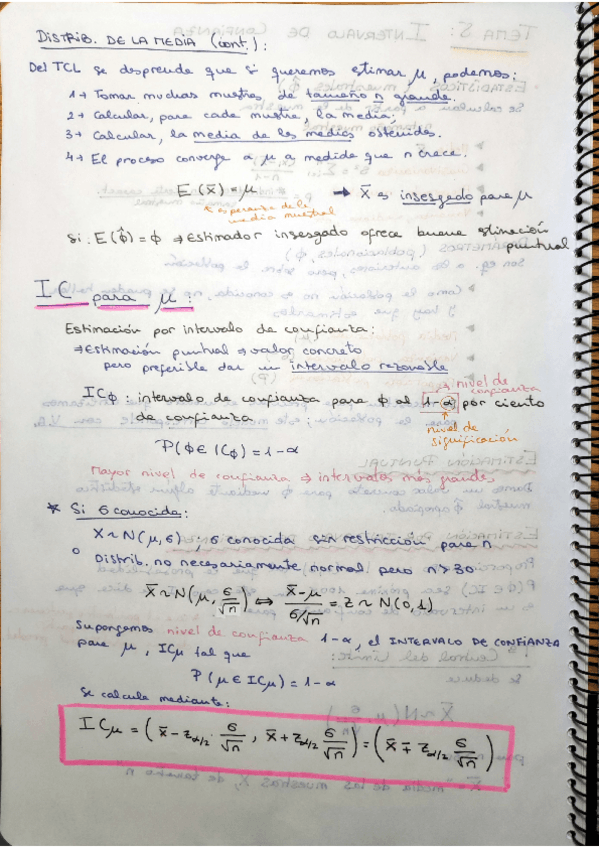 DISTRIB. DE LA MEDIA (cont.):
Del TCL se desprende que si queremos estimar μ, podemos:
1→ Tomar muchas muestras de tamaño n grande.
2→ Calcular, para cada muestra, la media.
3→ Calcular, la media de las medias obtenidas.
4→ El proceso converge a μ a medida que n crece.
E(x̄)=μ → x̄ es insesgado para μ
esperanza de la
media muestral
Si: E(φ̂)=φ ⇒ Estimador insesgado ofrece buena estimación
puntual
IC para μ:
Estimación por intervalo de confianza:
⇒ Estimación puntual ⇒ valor concreto
pero preferible dar un intervalo razonable
→ nivel de
confianza
ICφ: intervalo de confianza para φ al 1-α por ciento
de confianza
nivel de
significación
P(φ∈ICφ)=1-α
Mayor nivel de confianza ⇒ intervalos más grandes
* Si σ conocida:
X~N(μ,σ); σ conocida sin restricción para n
o Distrib. no necesariamente normal pero n>30
X̄~N(μ, σ/√n) ⟺ (X̄-μ)/(σ/√n) = Z ~ N(0,1)
Supongamos nivel de confianza 1-α, el INTERVALO DE CONFIANZA
para μ, ICμ tal que
P(μ∈ICμ)=1-α
Se calcula mediante:
ICμ = (x̄ - z_α/2 · σ/√n, x̄ + z_α/2 σ/√n) = (x̄ ∓ z_α/2 σ/√n)